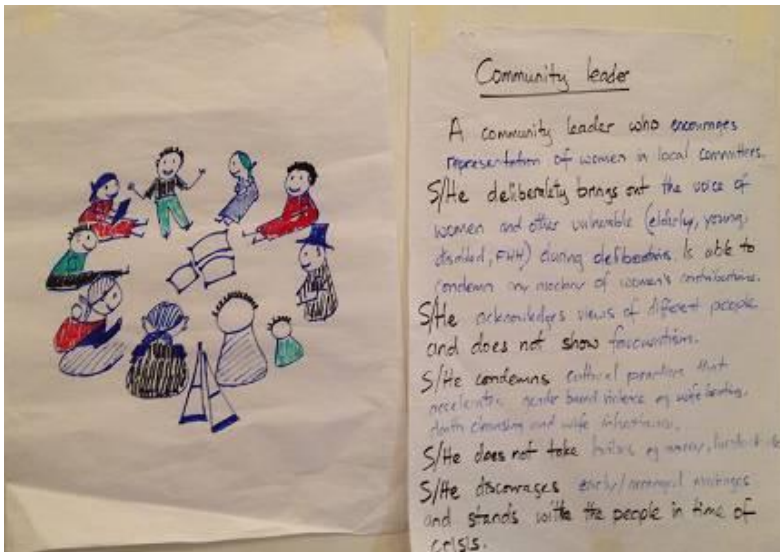 Community leader
A community leader who encourages
representation of women in local committees.
S/He deliberalety brings out the voice of
women and other vulnerable (elderly, young,
disabled, FHH) during deliberations. Is able to
condemn any mockery of women's contributions.
S/He acknowledges views of different people
and does not show favouritism.
S/He condemns cultural practices that
gender based violence eg wife beating,
death cleansing and wife inheritance.
S/He does not take bribes eg money,
S/He discourages early/arranged marriages
and stands with the people in time of
crisis.